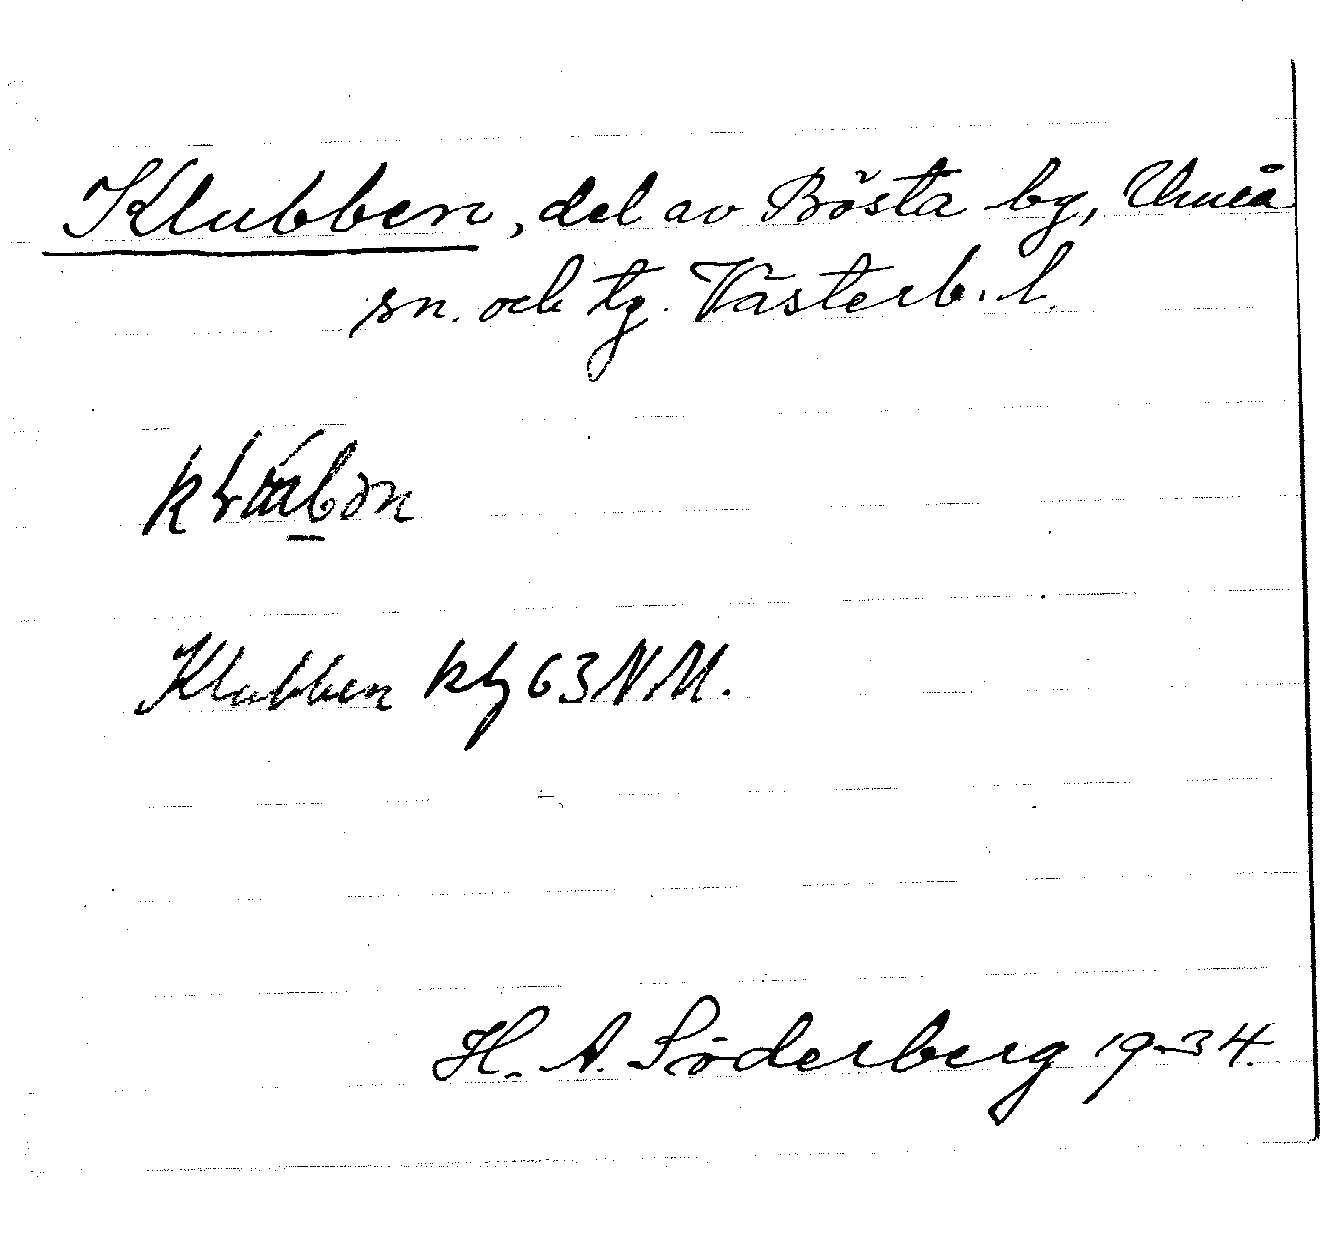 Klubben, del av Bösta by, Umeå
sn. och tg. Västerb. l.
Klubben kbl 63 NM.
H. A. Söderberg 1934.